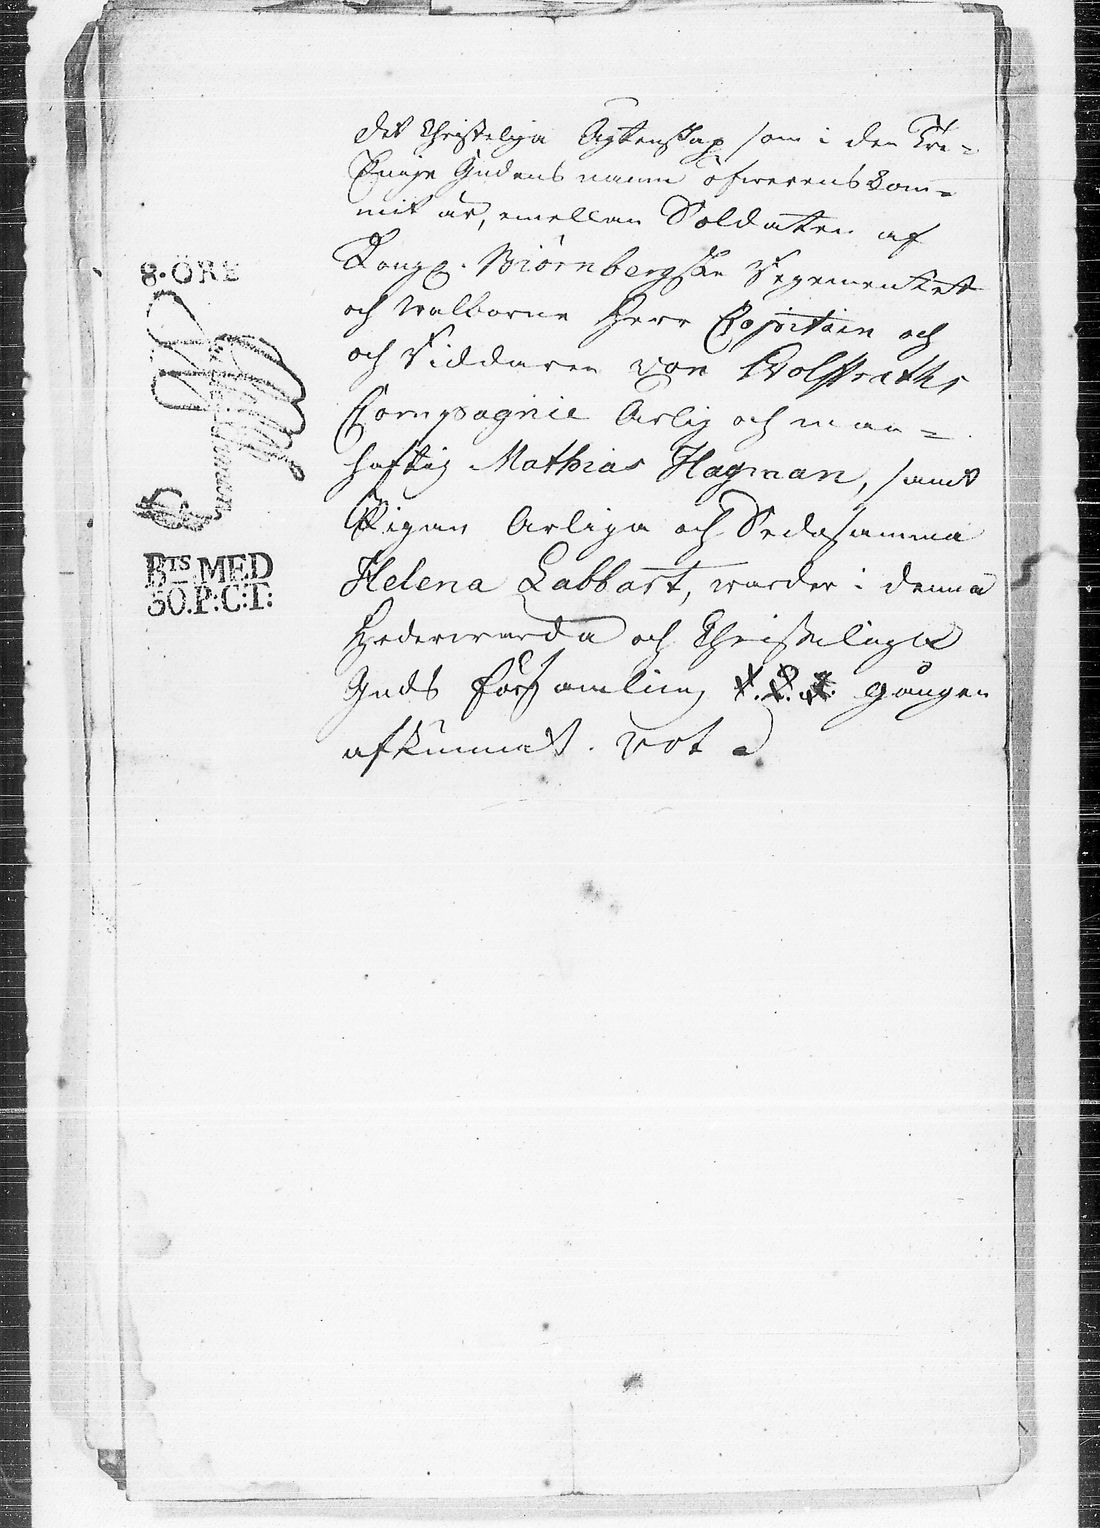 Det Christeliga Ägtenskap som i den Tre=
Eniga Gudens namn öfwerenskom=
mit är, emellan Soldaten af
Kongl. Biörnbergska Regementet
och Walborne Herr Capitain och
och Riddaren von Wolffraths
Compagnie Ärlig och man=
haftig Mathias Hagman, samt
Pigan Ärliga och Sedesamma
Helena Labbart, warder i denna
Hedervärda och Christeliga
Guds församling gången
afkunnat.
8. ÖRE
BTS MED
50.P:C:T: